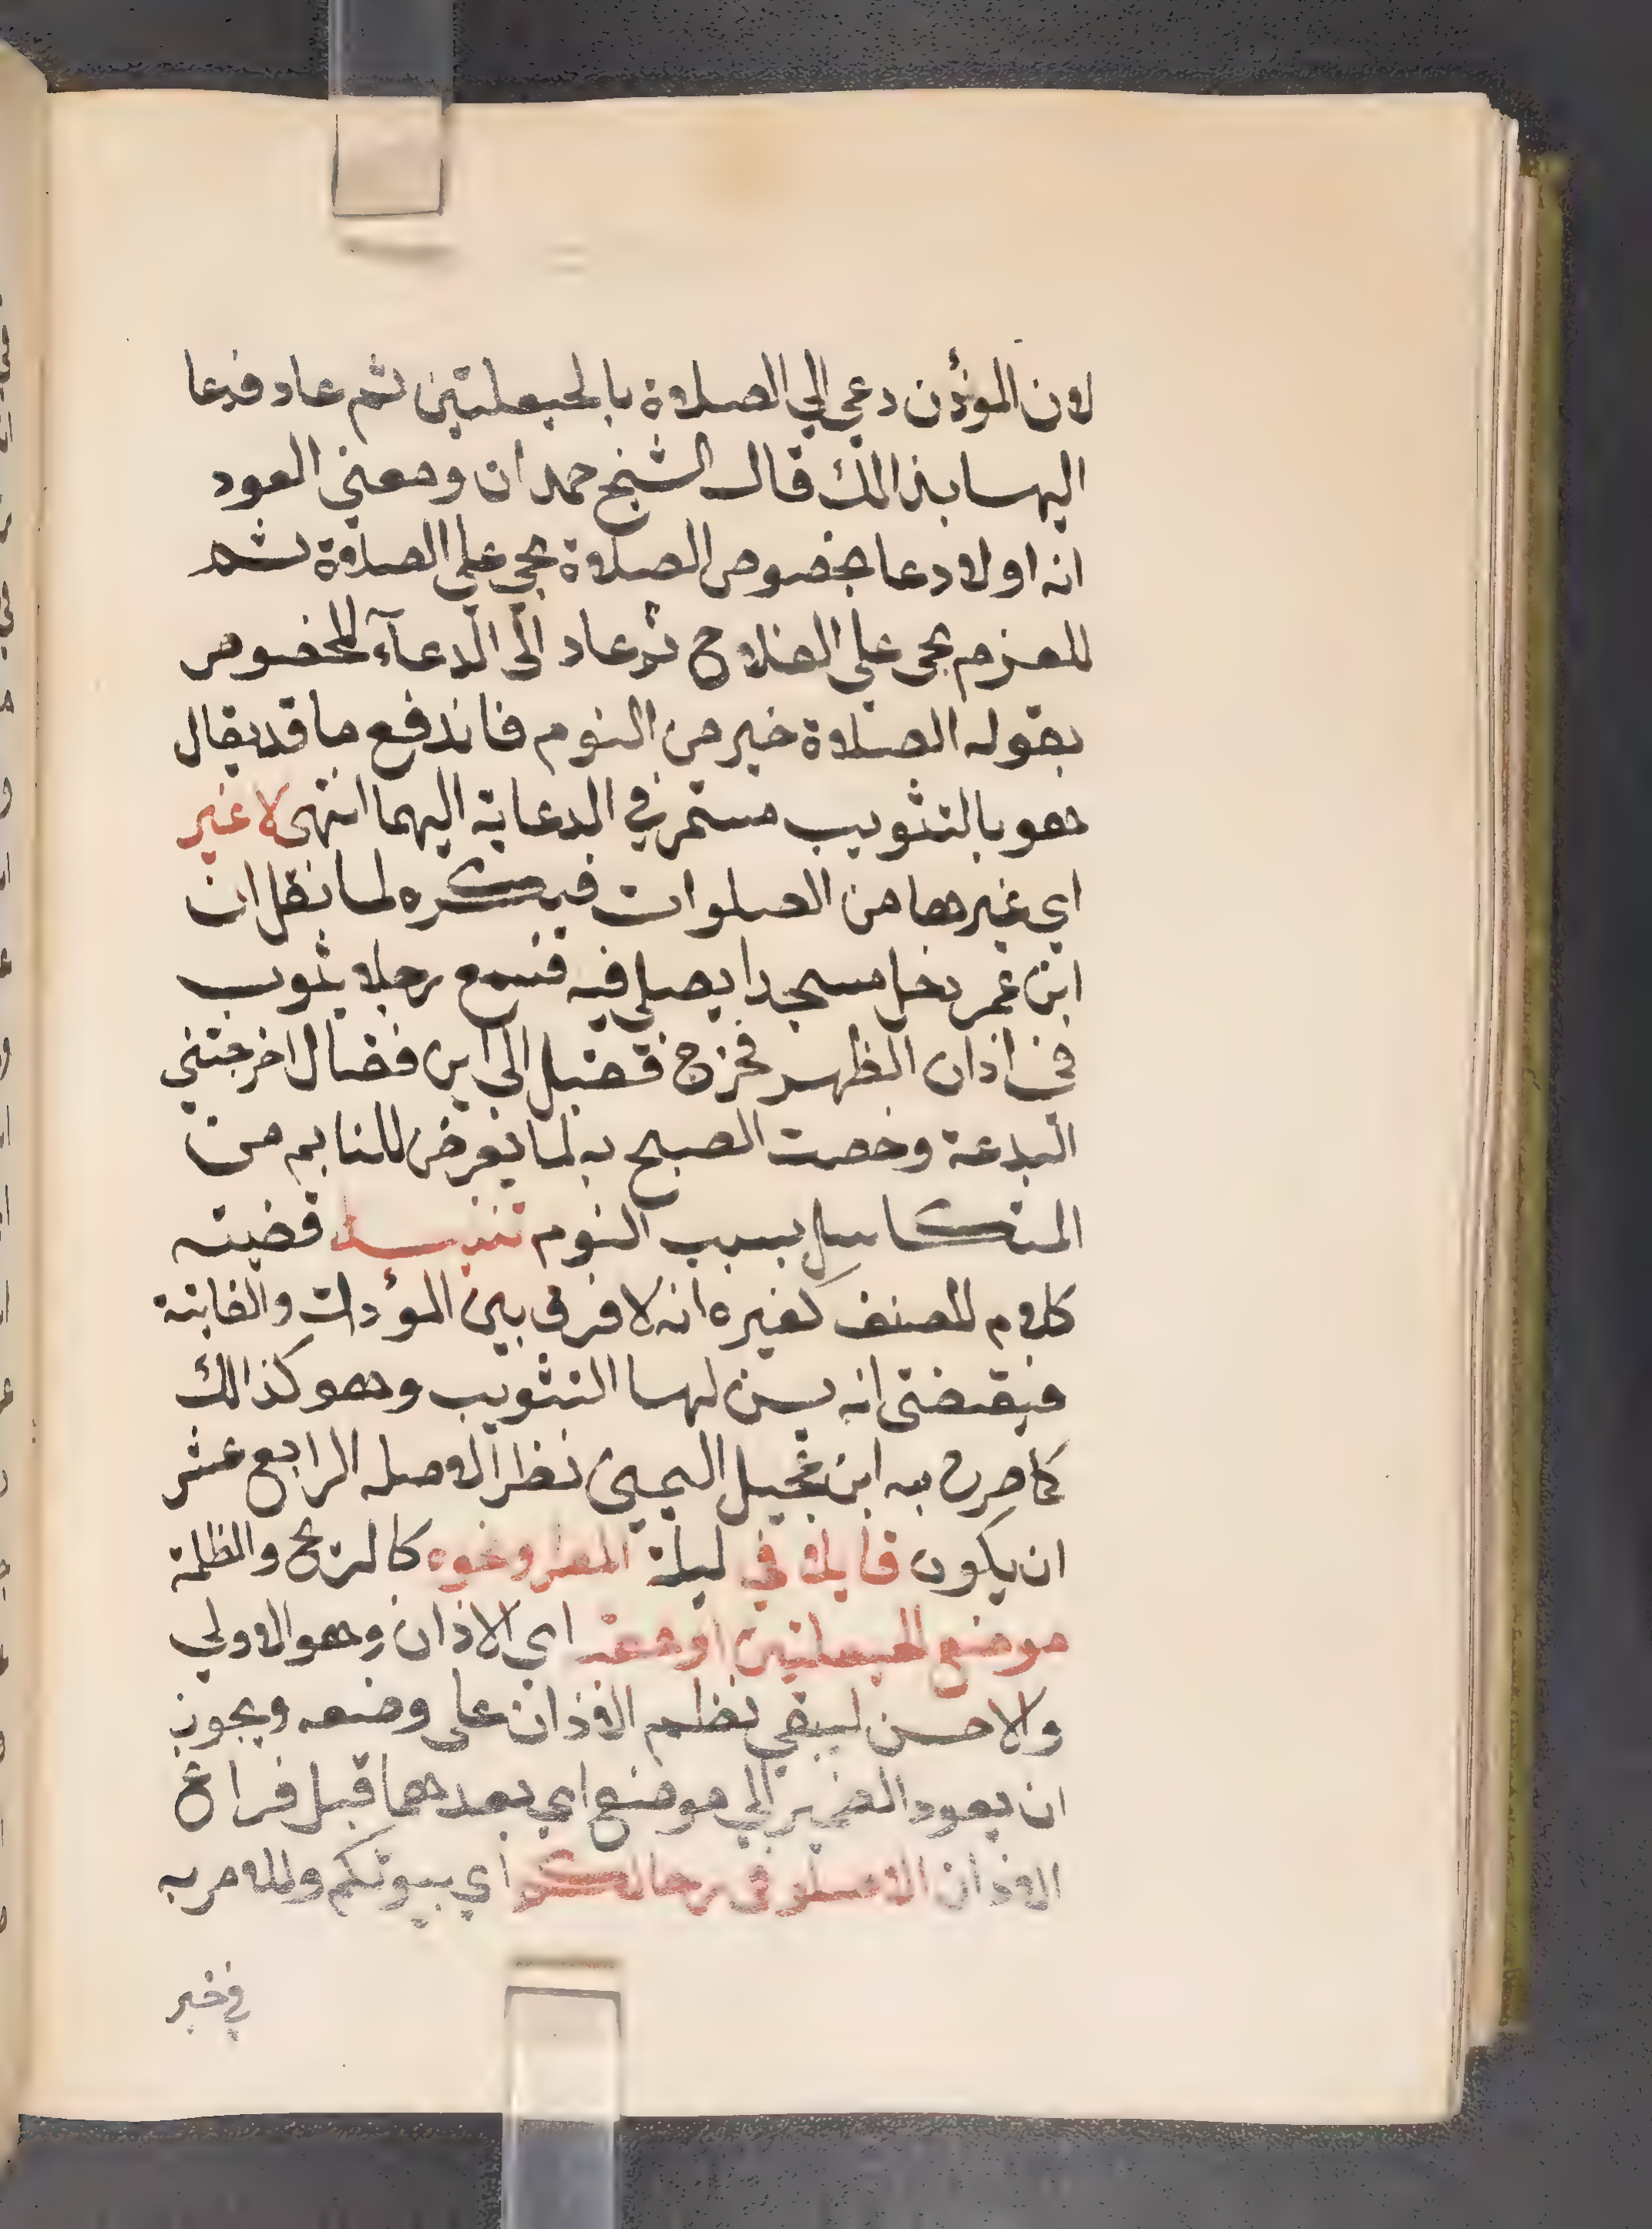 لان المؤذن دعي الي الصلاة بالحيعلتين ثم عاد فدعا
اليها بذالك قال الشيخ حمدان ومعني العود
انه اولا دعا بخصوص الصلاة بحي علي الصلاة ثم
للعزم بحي علي الفلاح ثم عاد الى الدعآء المخصوص
بقوله الصلاة خير من النوم فاندفع ما قد يقال
هو بالتثويب مستمر في الدعاية اليهما انتهى لا غير
اي غيرها من الصلوات فيكره لما نقل ان
ابن عمر دخل مسجدا يصلي فيه فسمع رجلا يثوب
في اذان الظهر فخرج فقيل الى اين فقال اخرجتني
البدعة وخصت الصبح به لما يعرض للنايم من
التكاسل بسبب النوم تنبيه قضيته
كلام المصنف كغيره انه لا فرق بين المؤدات والفايتة
فيقتضى انه يسن لها التثويب وهو كذالك
كما صرح به ابن عجيل اليمني نظرا لاصله الرابع عشر
ان يكون قايلا في ليلة المطر ونحوه كالريح والظلمة
موضع الحيعلتين او عقبه اي الاذان وهو الاولي
والاحسن ليبقي نظم الاذان على وضعه ويجوز
ان يعود الضمير الي موضع اي بعدهما قبل فراغ
الاذان الا صلو في رحالكم اي بيوتكم وللامر به
في خبر